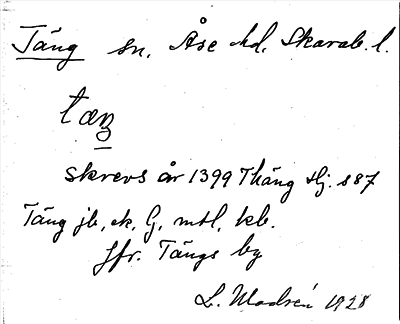 Täng sn, Åse hd. Skarab. l.
tæŋ
skrevs år 1399 Thäng Hj. s 87
Täng jb, ek, G, mtl, kb.
Jfr. Tängs by
L. Modzén 1928